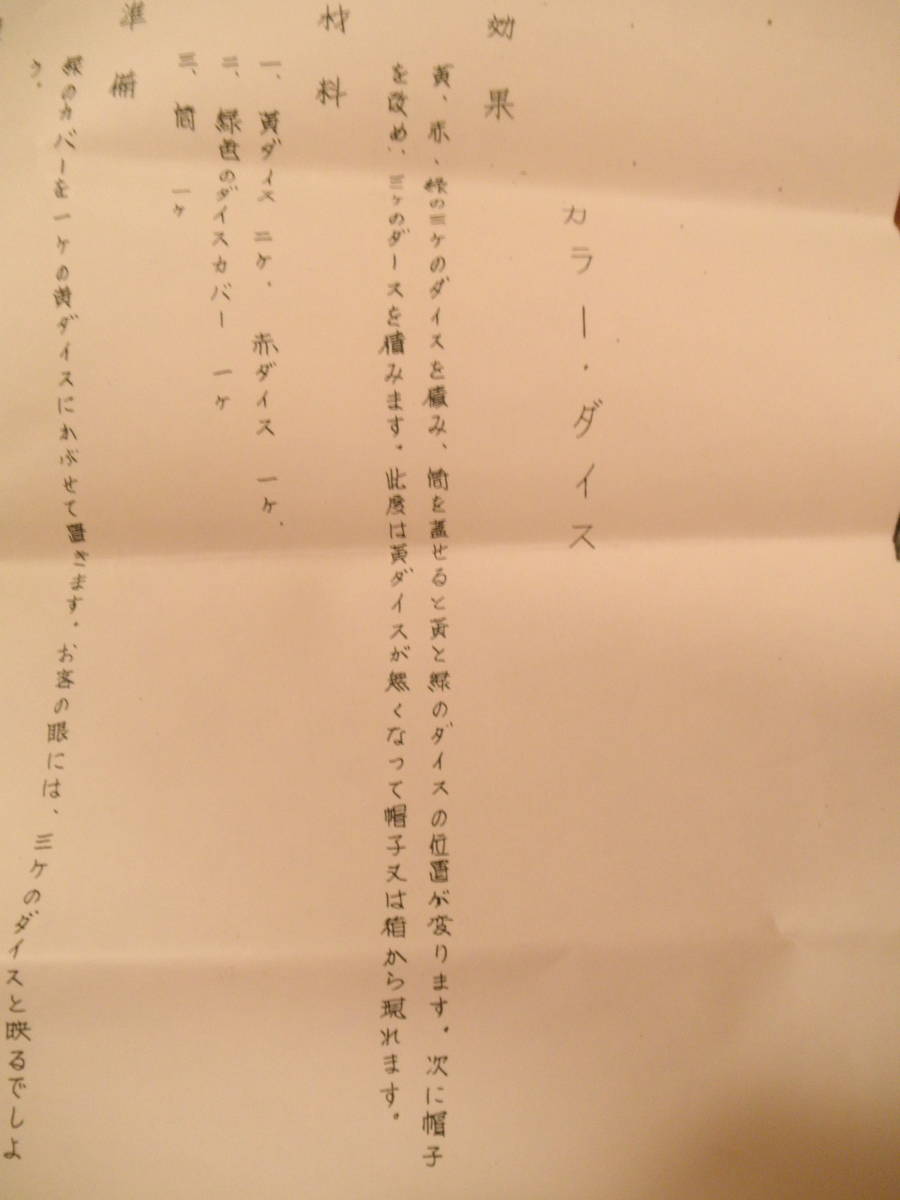 カラー・ダイス
効果
黄、赤、緑の三ケのダイスを積み、筒を蓋せると黄と緑のダイスの位置が変ります。次に帽子
を改め、三ケのダースを積みます。此度は黄ダイスが無くなって帽子又は箱から現れます。
材料
一、黄ダイス 二ケ、 赤ダイス 一ケ、
二、緑色のダイスカバー 一ケ
三、筒 一ケ
準備
緑のカバーを一ケの黄ダイスにかぶせて置きます。お客の眼には、三ケのダイスと映るでしよ
う。